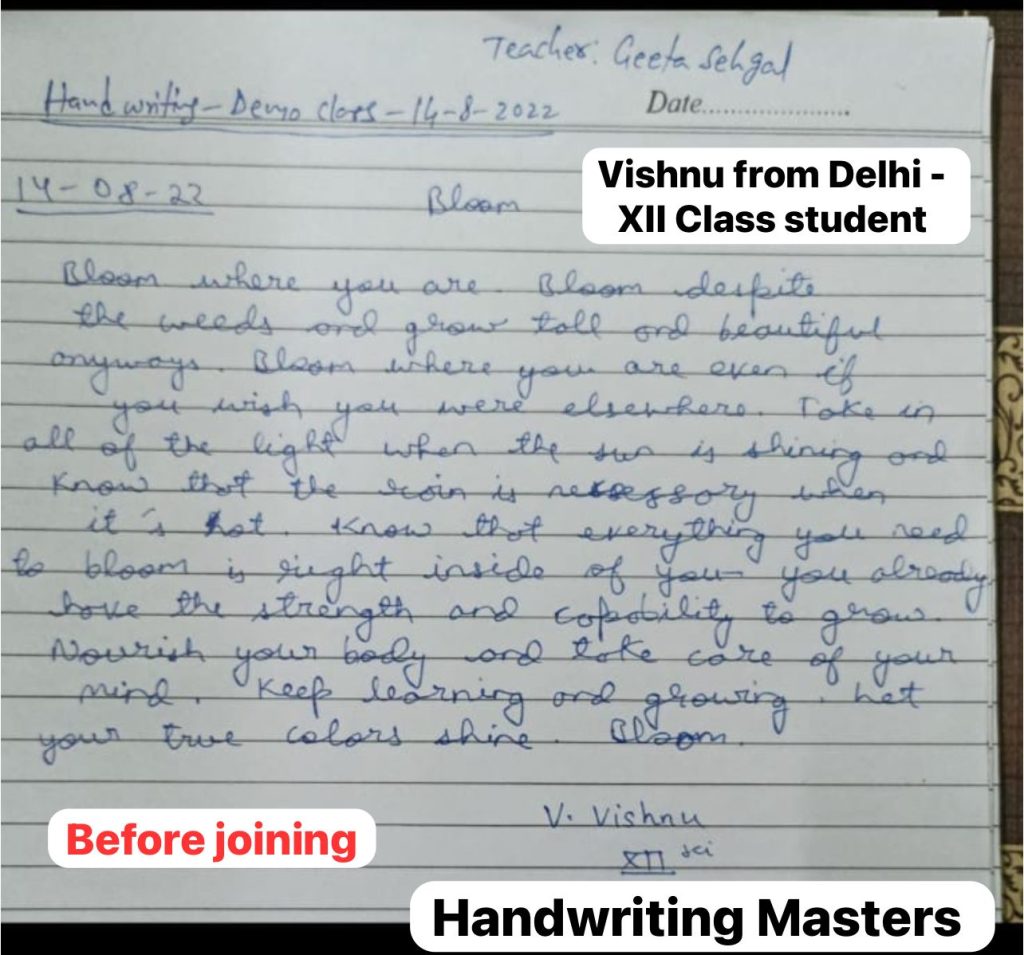 Teacher: Geeta Sehgal
Handwriting - Demo class - 14-8-2022
Date....................
Vishnu from Delhi -
XII Class student
14-08-22
Bloom
Bloom where you are. Bloom despite
the weeds and grow tall and beautiful
anyways. Bloom where you are even if
you wish you were elsewhere. Take in
all of the light when the sun is shining and
Know that the rain is necessary when
it's hot. Know that everything you need
to bloom is right inside of you- you already
have the strength and capability to grow.
Nourish your body and take care of your
mind. Keep learning and growing. Let
your true colors shine. Bloom.
V. Vishnu
XII sci
Before joining
Handwriting Masters